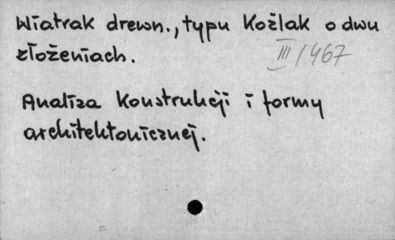 Wiatrak drewn., typu Koźlak o dwu
złożeniach.
III/1467
Analiza Konstrukcji i formy
architektonicznej.